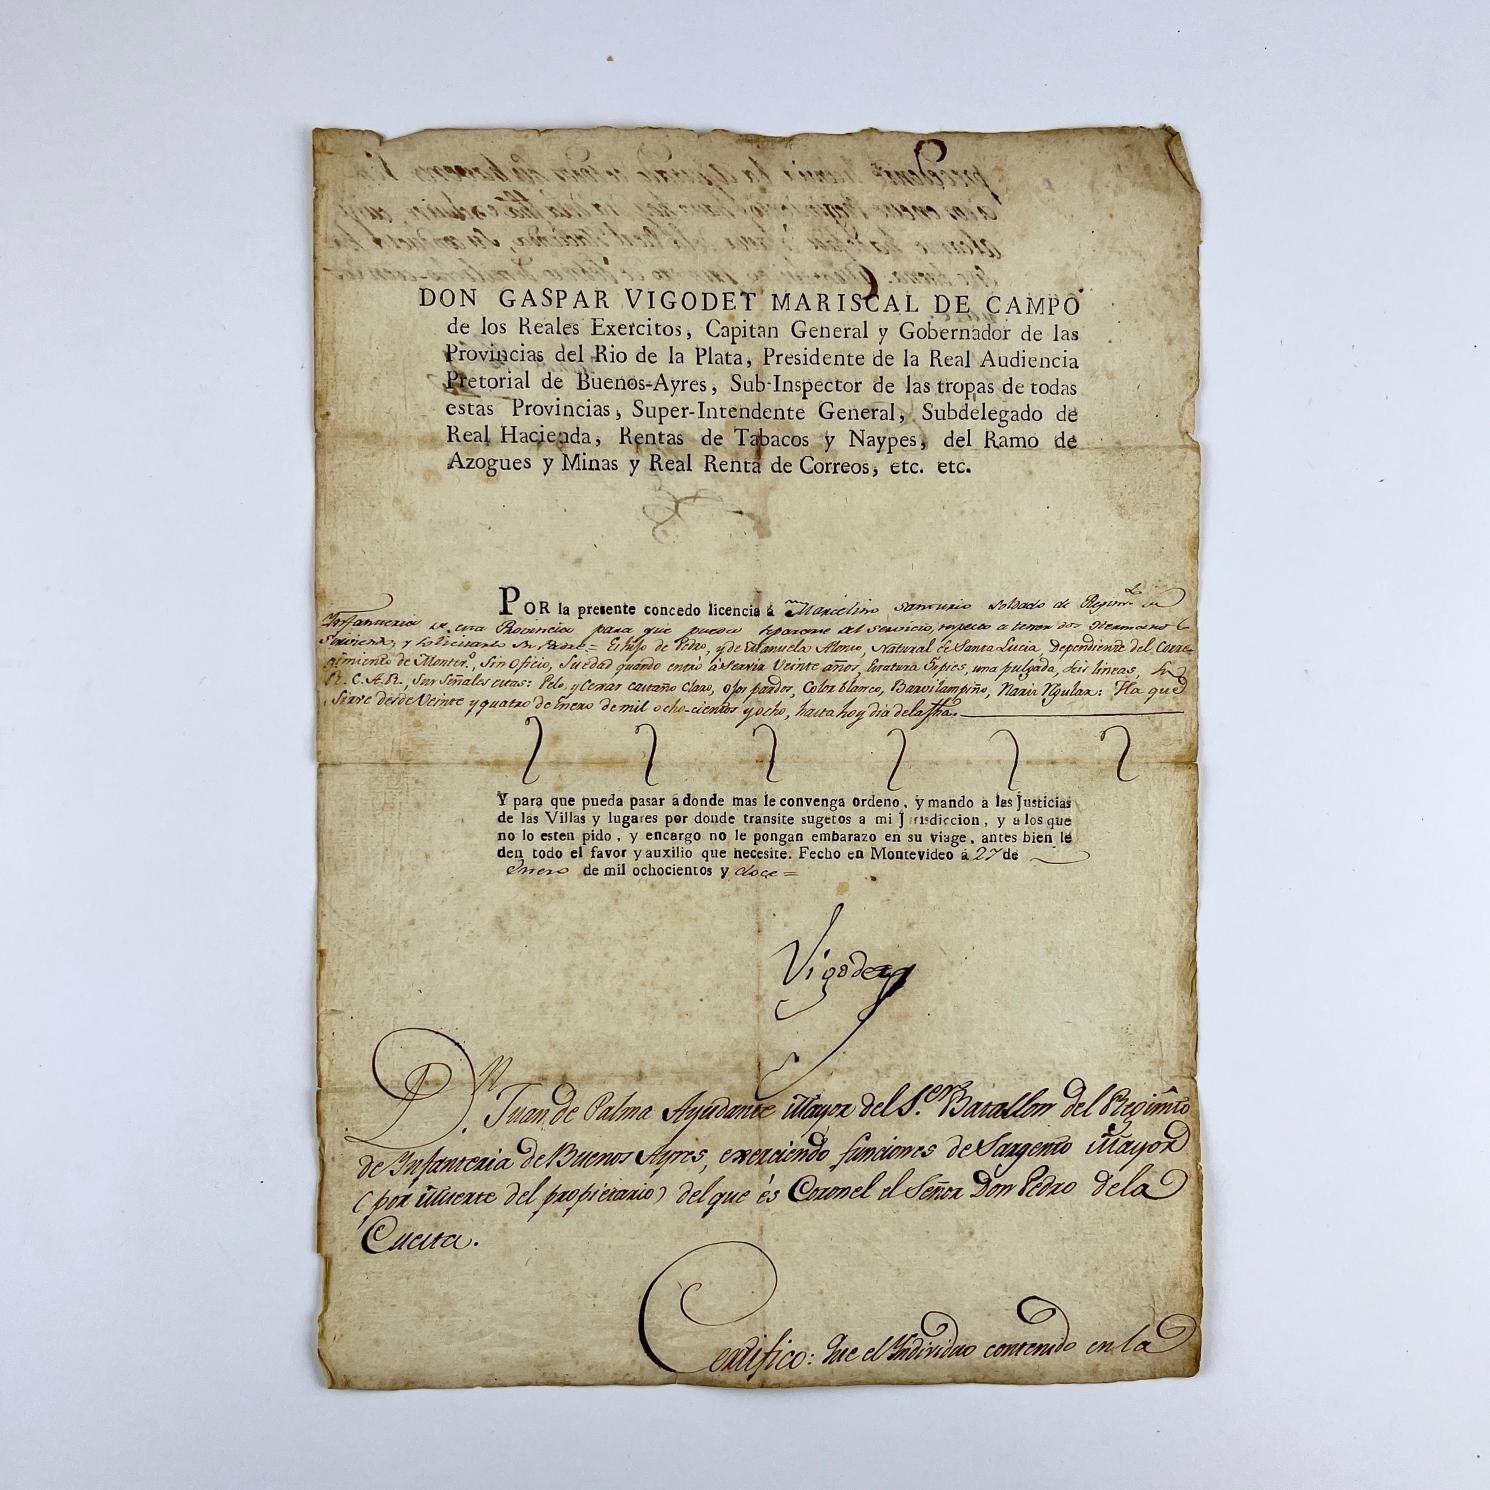 DON GASPAR VIGODET MARISCAL DE CAMPO
de los Reales Exercitos, Capitan General y Gobernador de las
Provincias del Rio de la Plata, Presidente de la Real Audiencia
Pretorial de Buenos-Ayres, Sub-Inspector de las tropas de todas
estas Provincias, Super-Intendente General, Subdelegado de
Real Hacienda, Rentas de Tabacos y Naypes, del Ramo de
Azogues y Minas y Real Renta de Correos, etc. etc.
POR la presente concedo licencia á Marcelino soldado de Regim.to
Infanteria de esta Provincia para que pueda separarse del servicio, respecto a tener dos Hermanos
Sirviendo, y solicitarlo su Padre = Es hijo de Pedro, y de Manuela Alonso, Natural de Santa Lucia, dependiente del Corre-
gimiento de Montev.o, Sin oficio, Su edad quando entró á servir Veinte años, Estatura 5 pies, una pulgada, seis lineas,
R. C. A. R. Sus señales estas: Pelo, y Cejas castaño claro, ojos pardos, Color blanco, Barvilampiño, Nariz Regular: Ha que
Sirve desde Veinte y quatro de Enero de mil ocho-cientos y ocho, hasta hoy dia de la fha.
Y para que pueda pasar adonde mas le convenga ordeno, y mando á las Justicias
de las Villas y lugares por donde transite sugetos a mi Jurisdiccion, y a los que
no lo esten pido, y encargo no le pongan embarazo en su viage, antes bien le
den todo el favor y auxilio que necesite. Fecho en Montevideo á 27 de
Enero de mil ochocientos y doce =
Vigodet
D.n Juan de Palma Ayudante Mayor del 1.er Batallon del Regim.to
de Infanteria de Buenos Ayres, exerciendo funciones de Sargento Mayor
(por Muerte del propietario) del que és Coronel el Señor Don Pedro de la
Cuesta.
Certifico: Que el Individuo contenido en la